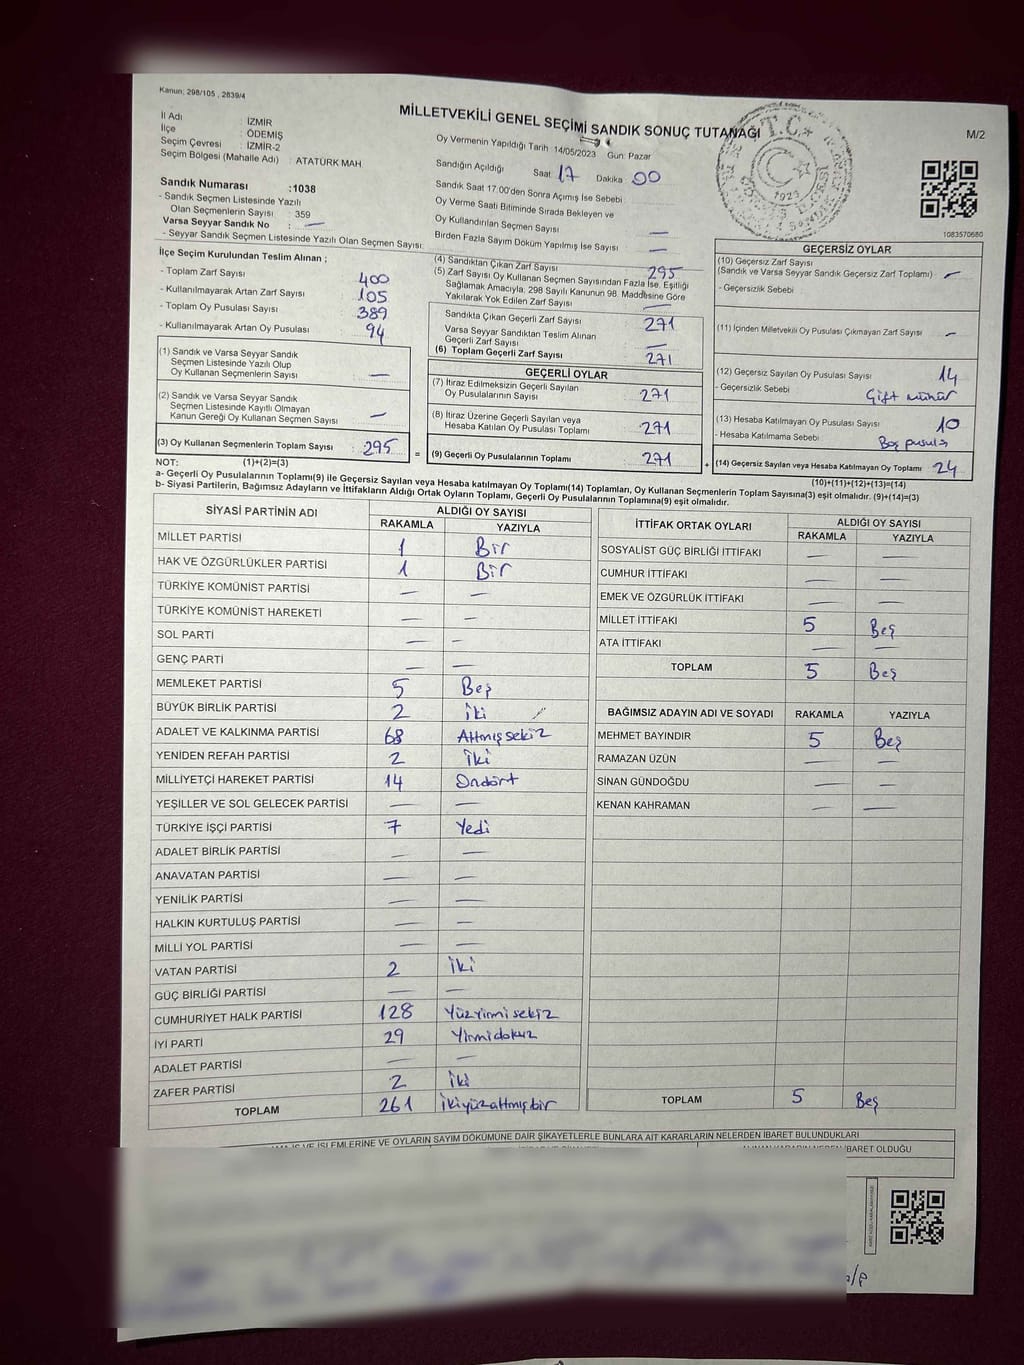 Kanun: 298/105 , 2839/4
MİLLETVEKİLİ GENEL SEÇİMİ SANDIK SONUÇ TUTANAĞI
M/2
İl Adı : İZMİR
İlçe : ÖDEMİŞ
Seçim Çevresi : İZMİR-2
Seçim Bölgesi (Mahalle Adı) : ATATÜRK MAH.
Sandık Numarası :1038
- Sandık Seçmen Listesinde Yazılı
Olan Seçmenlerin Sayısı : 359
Varsa Seyyar Sandık No : —
- Seyyar Sandık Seçmen Listesinde Yazılı Olan Seçmen Sayısı:
Oy Vermenin Yapıldığı Tarih 14/05/2023 Gün: Pazar
Sandığın Açıldığı Saat 17 Dakika 00
Sandık Saat 17.00'den Sonra Açımış İse Sebebi
Oy Verme Saati Bitiminde Sırada Bekleyen ve
Oy Kullandırılan Seçmen Sayısı —
Birden Fazla Sayım Döküm Yapılmış İse Sayısı —
T.C.
1923
1083570680
İlçe Seçim Kurulundan Teslim Alınan ;
- Toplam Zarf Sayısı 400
- Kullanılmayarak Artan Zarf Sayısı 105
- Toplam Oy Pusulası Sayısı 389
- Kullanılmayarak Artan Oy Pusulası 94
(1) Sandık ve Varsa Seyyar Sandık
Seçmen Listesinde Yazılı Olup
Oy Kullanan Seçmenlerin Sayısı —
(2) Sandık ve Varsa Seyyar Sandık
Seçmen Listesinde Kayıtlı Olmayan
Kanun Gereği Oy Kullanan Seçmen Sayısı —
(3) Oy Kullanan Seçmenlerin Toplam Sayısı 295
(4) Sandıktan Çıkan Zarf Sayısı 295
(5) Zarf Sayısı Oy Kullanan Seçmen Sayısından Fazla İse, Eşitliği
Sağlamak Amacıyla, 298 Sayılı Kanunun 98. Maddesine Göre
Yakılarak Yok Edilen Zarf Sayısı —
Sandıkta Çıkan Geçerli Zarf Sayısı 271
Varsa Seyyar Sandıktan Teslim Alınan
Geçerli Zarf Sayısı —
(6) Toplam Geçerli Zarf Sayısı 271
GEÇERLİ OYLAR
(7) İtiraz Edilmeksizin Geçerli Sayılan
Oy Pusulalarının Sayısı 271
(8) İtiraz Üzerine Geçerli Sayılan veya
Hesaba Katılan Oy Pusulası Toplamı 271
= (9) Geçerli Oy Pusulalarının Toplamı 271
GEÇERSİZ OYLAR
(10) Geçersiz Zarf Sayısı
(Sandık ve Varsa Seyyar Sandık Geçersiz Zarf Toplamı) —
- Geçersizlik Sebebi
(11) İçinden Milletvekili Oy Pusulası Çıkmayan Zarf Sayısı —
(12) Geçersiz Sayılan Oy Pusulası Sayısı 14
- Geçersizlik Sebebi Çift mühür
(13) Hesaba Katılmayan Oy Pusulası Sayısı 10
- Hesaba Katılmama Sebebi Boş pusula
+ (14) Geçersiz Sayılan veya Hesaba Katılmayan Oy Toplamı 24
NOT: (1)+(2)=(3)
(10)+(11)+(12)+(13)=(14)
a- Geçerli Oy Pusulalarının Toplamı(9) ile Geçersiz Sayılan veya Hesaba katılmayan Oy Toplamı(14) Toplamları, Oy Kullanan Seçmenlerin Toplam Sayısına(3) eşit olmalıdır. (9)+(14)=(3)
b- Siyasi Partilerin, Bağımsız Adayların ve İttifakların Aldığı Ortak Oyların Toplamı, Geçerli Oy Pusulalarının Toplamına(9) eşit olmalıdır.
SİYASİ PARTİNİN ADI ALDIĞI OY SAYISI
RAKAMLA YAZIYLA
MİLLET PARTİSİ 1 Bir
HAK VE ÖZGÜRLÜKLER PARTİSİ 1 Bir
TÜRKİYE KOMÜNİST PARTİSİ — —
TÜRKİYE KOMÜNİST HAREKETİ — —
SOL PARTİ — —
GENÇ PARTİ — —
MEMLEKET PARTİSİ 5 Beş
BÜYÜK BİRLİK PARTİSİ 2 İki
ADALET VE KALKINMA PARTİSİ 68 Altmışsekiz
YENİDEN REFAH PARTİSİ 2 İki
MİLLİYETÇİ HAREKET PARTİSİ 14 Ondört
YEŞİLLER VE SOL GELECEK PARTİSİ — —
TÜRKİYE İŞÇİ PARTİSİ 7 Yedi
ADALET BİRLİK PARTİSİ — —
ANAVATAN PARTİSİ — —
YENİLİK PARTİSİ — —
HALKIN KURTULUŞ PARTİSİ — —
MİLLİ YOL PARTİSİ — —
VATAN PARTİSİ 2 İki
GÜÇ BİRLİĞİ PARTİSİ — —
CUMHURİYET HALK PARTİSİ 128 Yüzyirmisekiz
İYİ PARTİ 29 Yirmidokuz
ADALET PARTİSİ — —
ZAFER PARTİSİ 2 İki
TOPLAM 261 İkiyüzaltmışbir
İTTİFAK ORTAK OYLARI ALDIĞI OY SAYISI
RAKAMLA YAZIYLA
SOSYALİST GÜÇ BİRLİĞİ İTTİFAKI — —
CUMHUR İTTİFAKI — —
EMEK VE ÖZGÜRLÜK İTTİFAKI — —
MİLLET İTTİFAKI 5 Beş
ATA İTTİFAKI — —
TOPLAM 5 Beş
BAĞIMSIZ ADAYIN ADI VE SOYADI RAKAMLA YAZIYLA
MEHMET BAYINDIR 5 Beş
RAMAZAN ÜZÜN — —
SİNAN GÜNDOĞDU — —
KENAN KAHRAMAN — —
TOPLAM 5 Beş
İŞLEMLERİNE VE OYLARIN SAYIM DÖKÜMÜNE DAİR ŞİKAYETLERLE BUNLARA AİT KARARLARIN NELERDEN İBARET BULUNDUKLARI
İBARET OLDUĞU